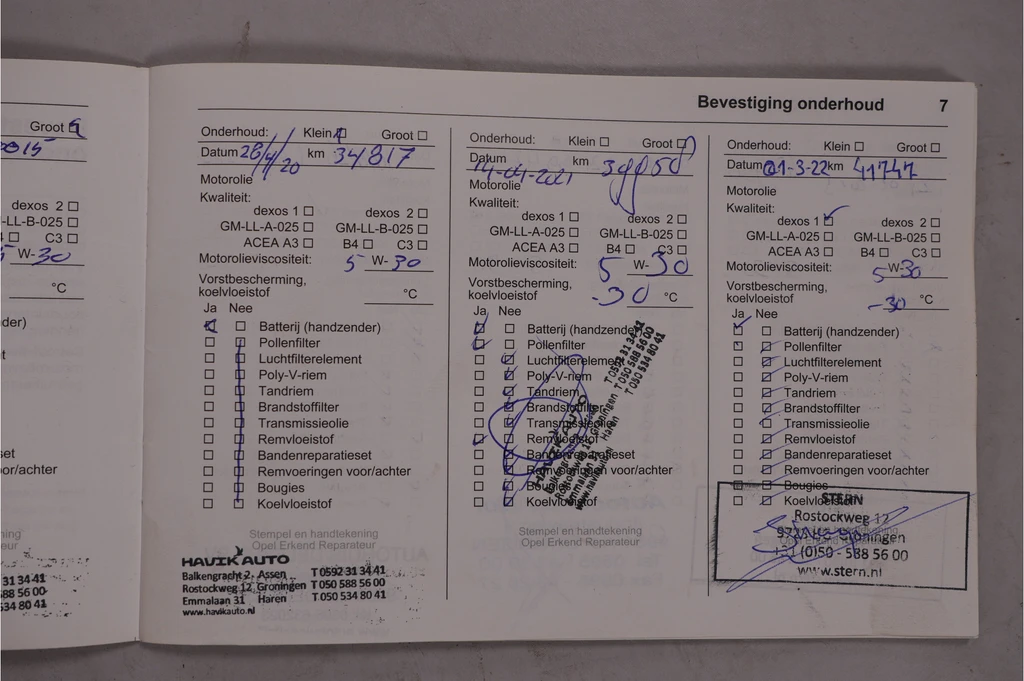 Bevestiging onderhoud 7
Groot
2015
dexos 2
-LL-B-025
C3
W-30
°C
der)
set
oor/achter
ning
eur
31 34 41
88 56 00
534 80 41
Onderhoud: Klein Groot
Datum 28/4/20 km 34817
Motorolie
Kwaliteit:
dexos 1 dexos 2
GM-LL-A-025 GM-LL-B-025
ACEA A3 B4 C3
Motorolieviscositeit: 5 W-30
Vorstbescherming,
koelvloeistof °C
Ja Nee
Batterij (handzender)
Pollenfilter
Luchtfilterelement
Poly-V-riem
Tandriem
Brandstoffilter
Transmissieolie
Remvloeistof
Bandenreparatieset
Remvoeringen voor/achter
Bougies
Koelvloeistof
Stempel en handtekening
Opel Erkend Reparateur
HAVIK AUTO
Balkengracht 2, Assen T 0592 31 34 41
Rostockweg 12 Groningen T 050 588 56 00
Emmalaan 31 Haren T 050 534 80 41
www.havikauto.nl
Onderhoud: Klein Groot
Datum 14-04-2021 km
Motorolie
Kwaliteit:
dexos 1 dexos 2
GM-LL-A-025 GM-LL-B-025
ACEA A3 B4 C3
Motorolieviscositeit: 5 W-30
Vorstbescherming,
koelvloeistof -30 °C
Ja Nee
Batterij (handzender)
Pollenfilter
Luchtfilterelement
Poly-V-riem
Tandriem
Brandstoffilter
Transmissieolie
Remvloeistof
Bandenreparatieset
Remvoeringen voor/achter
Bougies
Koelvloeistof
HAVIK AUTO
Balkengracht 2, Assen T 0592 31 34 41
Rostockweg 12 Groningen T 050 588 56 00
Emmalaan 31 Haren T 050 534 80 41
www.havikauto.nl
Stempel en handtekening
Opel Erkend Reparateur
Onderhoud: Klein Groot
Datum 01-3-22 km 41747
Motorolie
Kwaliteit:
dexos 1 dexos 2
GM-LL-A-025 GM-LL-B-025
ACEA A3 B4 C3
Motorolieviscositeit: 5 W-30
Vorstbescherming,
koelvloeistof -30 °C
Ja Nee
Batterij (handzender)
Pollenfilter
Luchtfilterelement
Poly-V-riem
Tandriem
Brandstoffilter
Transmissieolie
Remvloeistof
Bandenreparatieset
Remvoeringen voor/achter
Bougies
Koelvloeistof
STERN
Rostockweg 12
Groningen
+31 (0)50 - 588 56 00
www.stern.nl